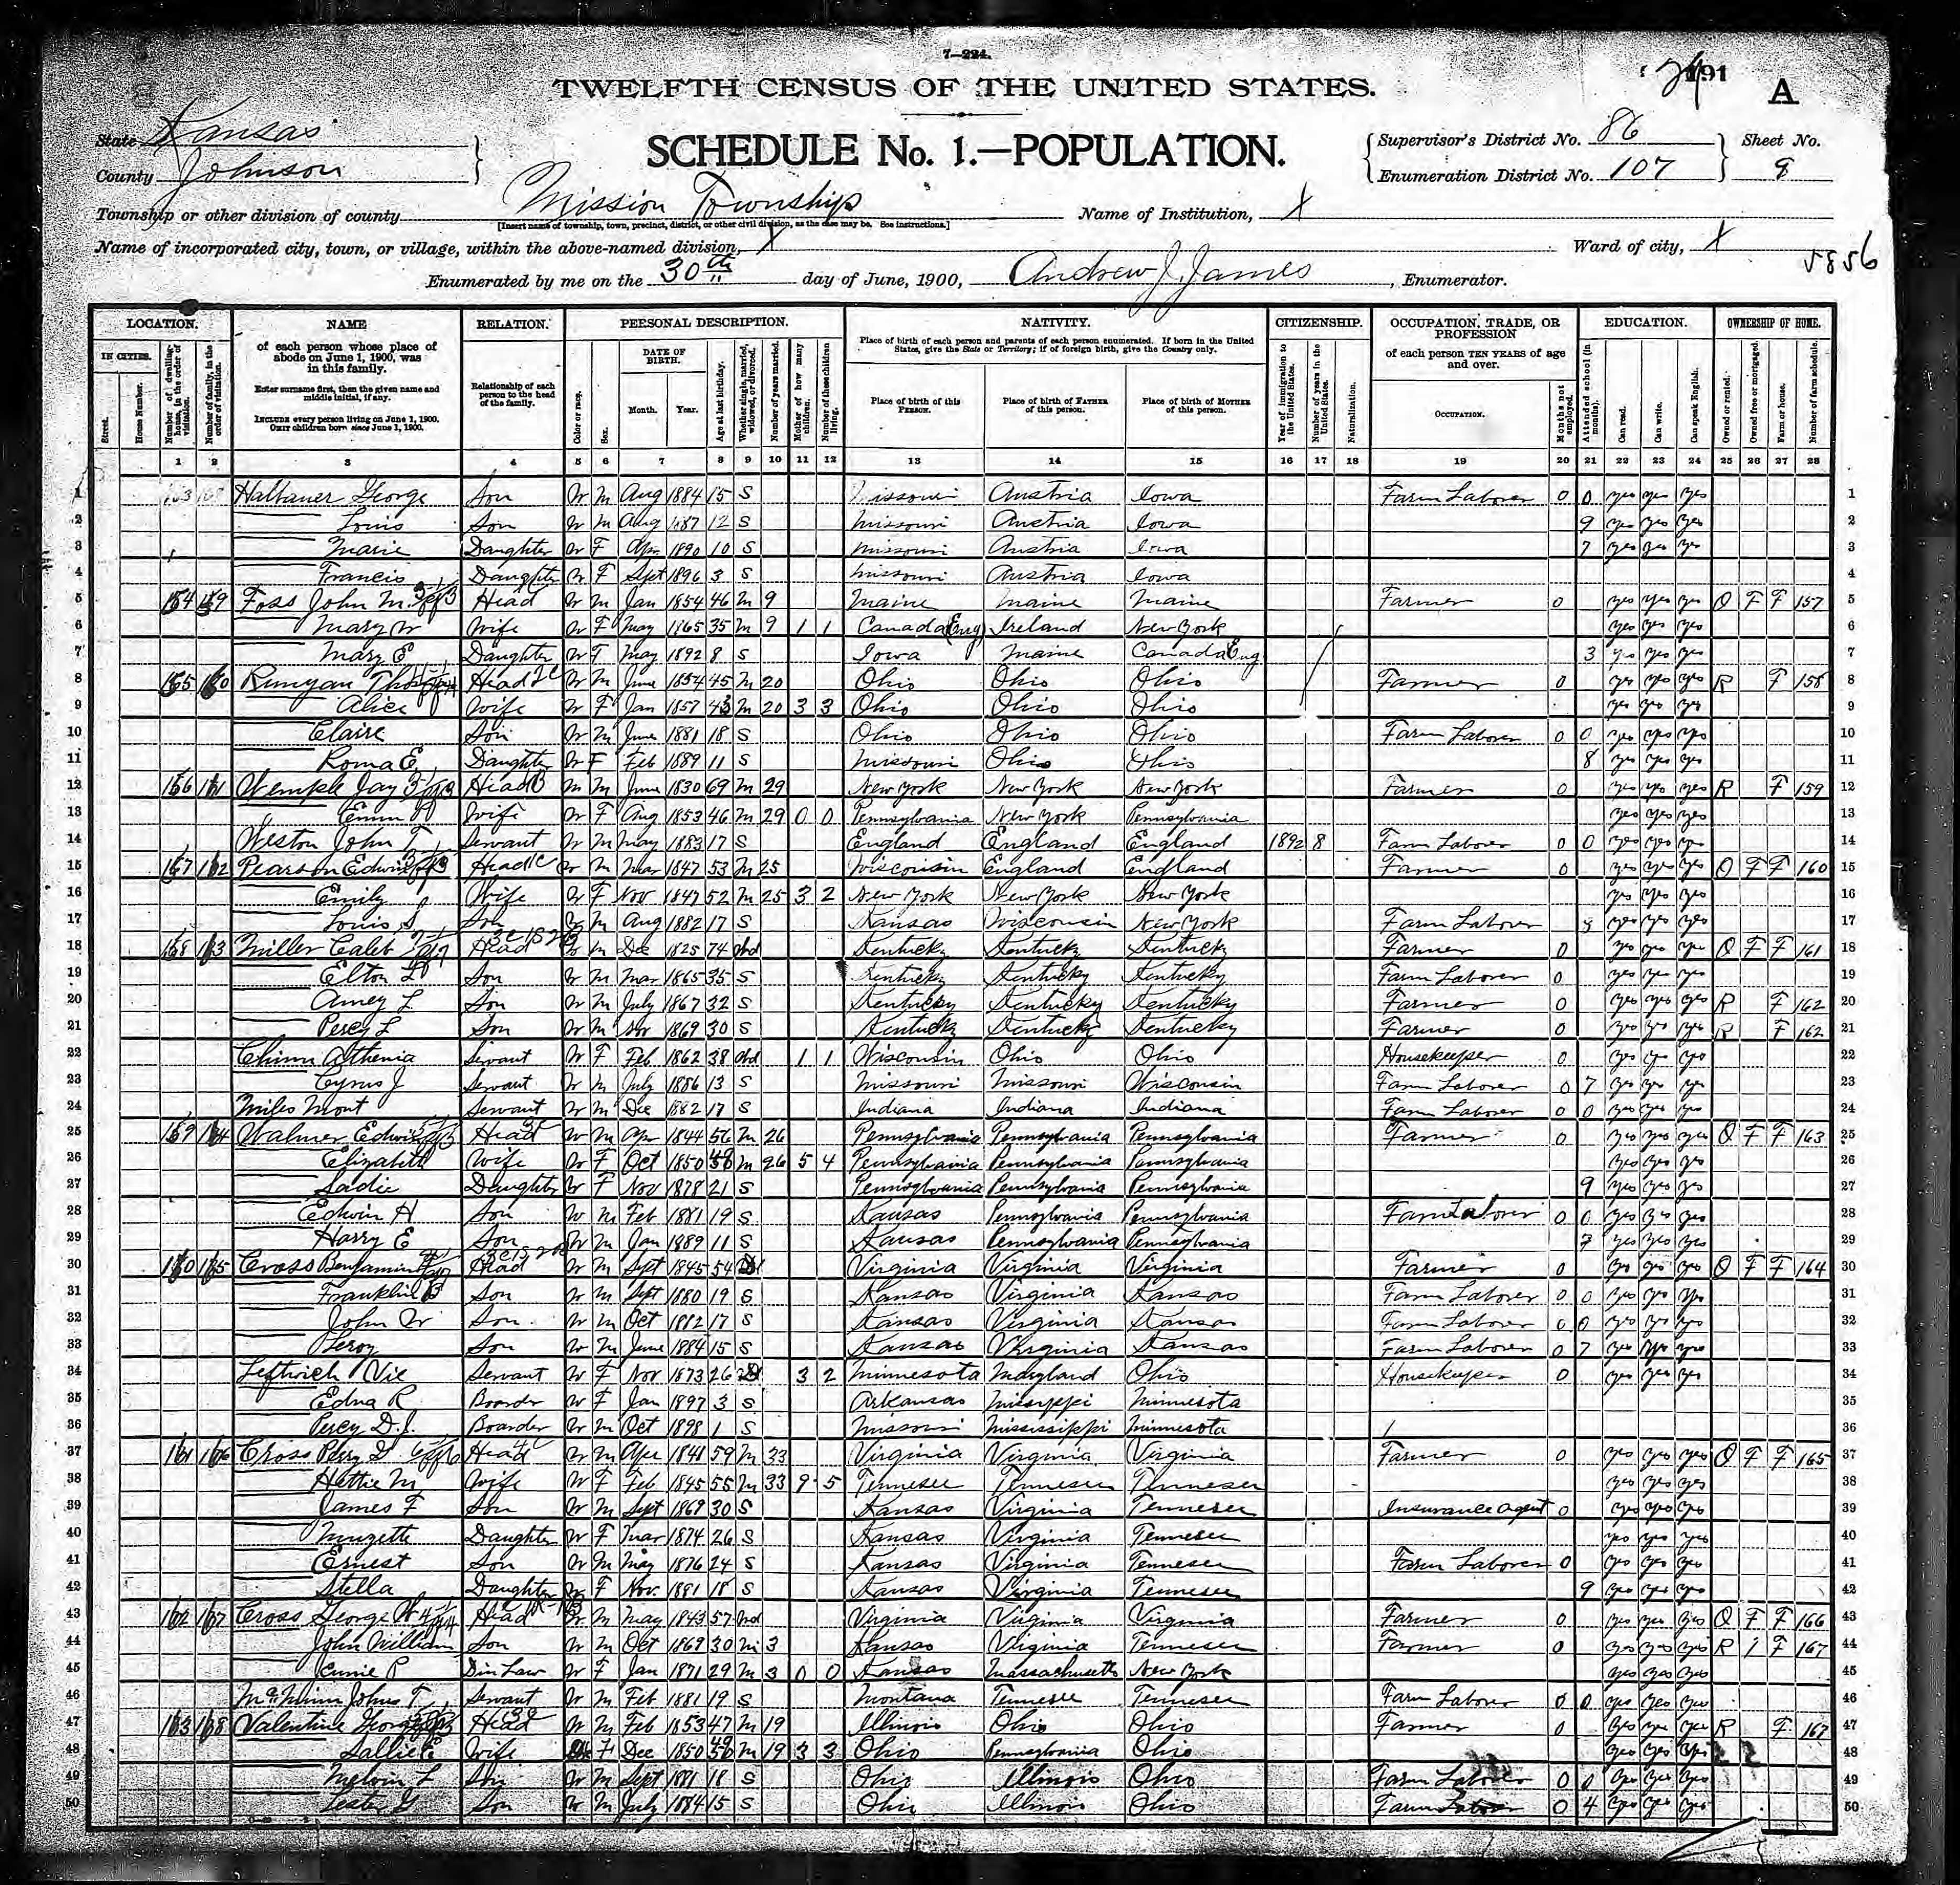 7—224.
TWELFTH CENSUS OF THE UNITED STATES.
191
A
State Kansas
County Johnson
SCHEDULE No. 1.—POPULATION.
Supervisor's District No. 86
Enumeration District No. 107
Sheet No.
Township or other division of county Mission Township
[Insert name of township, town, precinct, district, or other civil division, as the case may be. See instructions.]
Name of Institution, X
Name of incorporated city, town, or village, within the above-named division, X
Ward of city, X
5856
Enumerated by me on the 30th day of June, 1900, Andrew J. James, Enumerator.
LOCATION. NAME RELATION. PERSONAL DESCRIPTION. NATIVITY. CITIZENSHIP. OCCUPATION, TRADE, OR PROFESSION EDUCATION. OWNERSHIP OF HOME.
IN CITIES. Street. House Number. Number of dwelling-house, in the order of visitation. Number of family, in the order of visitation.
of each person whose place of abode on June 1, 1900, was in this family.
Enter surname first, then the given name and middle initial, if any.
INCLUDE every person living on June 1, 1900. OMIT children born since June 1, 1900.
Relationship of each person to the head of the family.
Color or race. Sex. DATE OF BIRTH. Month. Year. Age at last birthday. Whether single, married, widowed, or divorced. Number of years married. Mother of how many children. Number of these children living.
Place of birth of each person and parents of each person enumerated. If born in the United States, give the State or Territory; if of foreign birth, give the Country only.
Place of birth of this PERSON. Place of birth of FATHER of this person. Place of birth of MOTHER of this person.
Year of immigration to the United States. Number of years in the United States. Naturalization.
of each person TEN YEARS of age and over.
OCCUPATION. Months not employed.
Attended school (in months). Can read. Can write. Can speak English.
Owned or rented. Owned free or mortgaged. Farm or house. Number of farm schedule.
1 2 3 4 5 6 7 8 9 10 11 12 13 14 15 16 17 18 19 20 21 22 23 24 25 26 27 28
1 George Son W M Aug 1884 15 S Missouri Austria Iowa Farm Laborer 0 0 yes yes yes 1
2 Louis Son W M Aug 1887 12 S Missouri Austria Iowa 9 yes yes yes 2
3 Marie Daughter W F Apr 1890 10 S Missouri Austria Iowa 7 yes yes yes 3
4 Francis Daughter W F Sept 1896 3 S Missouri Austria Iowa 4
5 154 159 Foss John M. Head W M Jan 1854 46 M 9 Maine Maine Maine Farmer 0 yes yes yes O F F 157 5
6 Mary W Wife W F May 1865 35 M 9 1 1 Canada (Eng) Ireland New York yes yes yes 6
7 Mary E Daughter W F May 1892 8 S Iowa Maine Canada Eng 3 yes yes yes 7
8 155 160 Runyan Thos Head W M June 1854 45 M 20 Ohio Ohio Ohio Farmer 0 yes yes yes R F 158 8
9 Alice Wife W F Jan 1857 43 M 20 3 3 Ohio Ohio Ohio yes yes yes 9
10 Claire Son W M June 1881 18 S Ohio Ohio Ohio Farm Laborer 0 0 yes yes yes 10
11 Roma E Daughter W F Feb 1889 11 S Missouri Ohio Ohio 8 yes yes yes 11
12 156 161 Wemple Jay Head M June 1830 69 M 29 New York New York New York Farmer 0 yes yes yes R F 159 12
13 Wife W F Aug 1853 46 M 29 0 0 Pennsylvania New York Pennsylvania yes yes yes 13
14 Weston John T Servant W M May 1883 17 S England England England 1892 8 Farm Laborer 0 0 yes yes yes 14
15 157 162 Pearson Edwin Head W M Mar 1847 53 M 25 Wisconsin England England Farmer 0 yes yes yes O F F 160 15
16 Emily Wife W F Nov 1847 52 M 25 3 2 New York New York New York yes yes yes 16
17 Louis S Son W M Aug 1882 17 S Kansas Wisconsin New York Farm Laborer yes yes yes 17
18 158 163 Miller Caleb Head W M Dec 1825 74 Wd Kentucky Kentucky Kentucky Farmer 0 yes yes yes O F F 161 18
19 Elton L Son W M Mar 1865 35 S Kentucky Kentucky Kentucky Farm Laborer 0 yes yes yes 19
20 Amey L Son W M July 1867 32 S Kentucky Kentucky Kentucky Farmer 0 yes yes yes R F 162 20
21 Percy L Son W M Nov 1869 30 S Kentucky Kentucky Kentucky Farmer 0 yes yes yes R F 162 21
22 Chinn Athenia Servant W F Feb 1862 38 Wd 1 1 Wisconsin Ohio Ohio Housekeeper 0 yes yes yes 22
23 Cyrus J Servant W M July 1886 13 S Missouri Missouri Wisconsin Farm Laborer 0 7 yes yes yes 23
24 Miles Mont Servant W M Dec 1882 17 S Indiana Indiana Indiana Farm Laborer 0 0 yes yes yes 24
25 159 164 Walmer Edwin Head W M Apr 1844 56 M 26 Pennsylvania Pennsylvania Pennsylvania Farmer 0 yes yes yes O F F 163 25
26 Elizabeth Wife W F Oct 1850 M 26 5 4 Pennsylvania Pennsylvania Pennsylvania yes yes yes 26
27 Sadie Daughter W F Nov 1878 21 S Pennsylvania Pennsylvania Pennsylvania 9 yes yes yes 27
28 Edwin H Son W M Feb 1881 19 S Kansas Pennsylvania Pennsylvania Farm Laborer 0 0 yes yes yes 28
29 Harry E Son W M Jan 1889 11 S Kansas Pennsylvania Pennsylvania 7 yes yes yes 29
30 160 165 Cross Benjamin Head W M Sept 1845 54 Virginia Virginia Virginia Farmer 0 yes yes yes O F F 164 30
31 Franklin B Son W M Sept 1880 19 S Kansas Virginia Kansas Farm Laborer 0 0 yes yes yes 31
32 John W Son W M Oct 1882 17 S Kansas Virginia Kansas Farm Laborer 0 0 yes yes yes 32
33 Leroy Son W M June 1884 15 S Kansas Virginia Kansas Farm Laborer 0 7 yes yes yes 33
34 Leftwich Vie Servant W F Nov 1873 26 3 2 Minnesota Maryland Ohio Housekeeper 0 yes yes yes 34
35 Edna R Boarder W F Jan 1897 3 S Arkansas Missippi Minnesota 35
36 Percy D.J. Boarder W M Oct 1898 1 S Missouri Mississippi Minnesota 36
37 161 166 Cross Perry G Head W M Apr 1841 59 M 33 Virginia Virginia Virginia Farmer 0 yes yes yes O F F 165 37
38 Hettie M Wife W F Feb 1845 55 M 33 9 5 Tennessee Tennessee Tennessee yes yes yes 38
39 James F Son W M Sept 1869 30 S Kansas Virginia Tennessee Insurance agent 0 yes yes yes 39
40 Daughter W F Mar 1874 26 S Kansas Virginia Tennessee yes yes yes 40
41 Ernest Son W M May 1876 24 S Kansas Virginia Tennessee Farm Laborer 0 yes yes yes 41
42 Stella Daughter W F Nov. 1881 18 S Kansas Virginia Tennessee 9 yes yes yes 42
43 162 167 Cross George W Head W M May 1843 57 Wd Virginia Virginia Virginia Farmer 0 yes yes yes O F F 166 43
44 John William Son W M Oct 1869 30 M 3 Kansas Virginia Tennessee Farmer 0 yes yes yes R F 167 44
45 D in Law W F Jan 1871 29 M 3 0 0 Kansas Massachusetts New York yes yes yes 45
46 John T Servant W M Feb 1881 19 S Montana Tennessee Tennessee Farm Laborer 0 0 yes yes yes 46
47 163 168 Valentine George Head W M Feb 1853 47 M 19 Illinois Ohio Ohio Farmer 0 yes yes yes R F 167 47
48 Sallie E Wife F Dec 1850 M 19 3 3 Ohio Pennsylvania Ohio yes yes yes 48
49 Melvin L Son W M Sept 1881 18 S Ohio Illinois Ohio Farm Laborer 0 0 yes yes yes 49
50 Lester G Son W M July 1884 15 S Ohio Illinois Ohio Farm Labor 0 4 yes yes yes 50